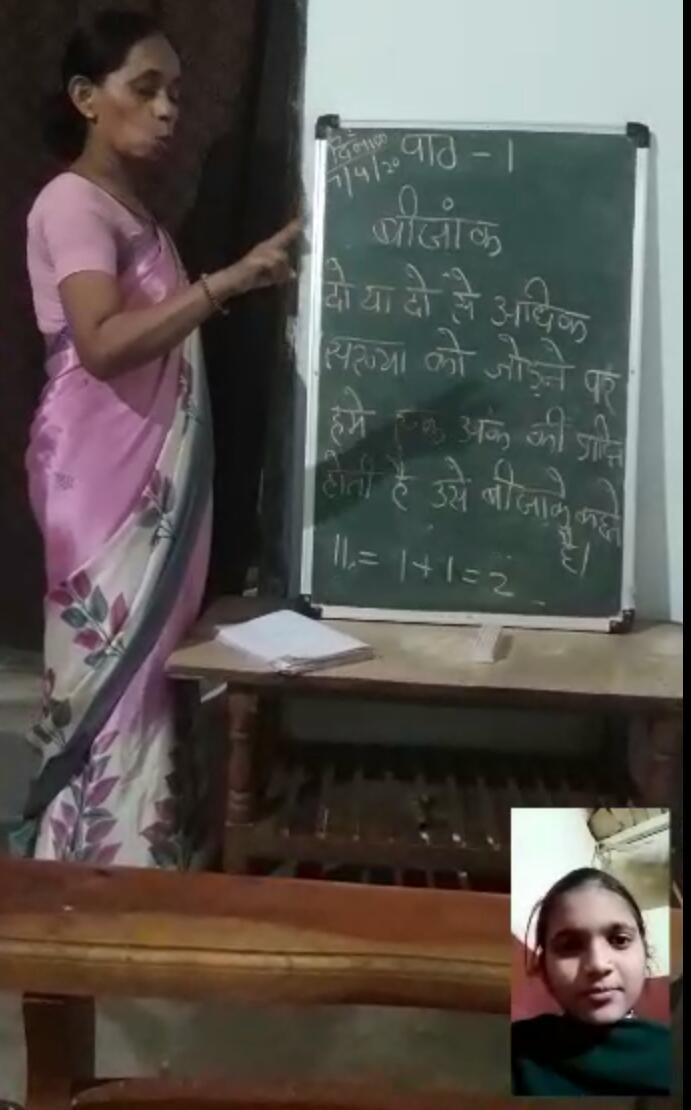 दिनांक पाठ - 1
/4/20
बीजांक
दो या दो से अधिक
सख्या को जोड़ने पर
हमे एक अंक की प्राप्ति
होती है उसे बीजांक कहते
है।
11 = 1+1=2